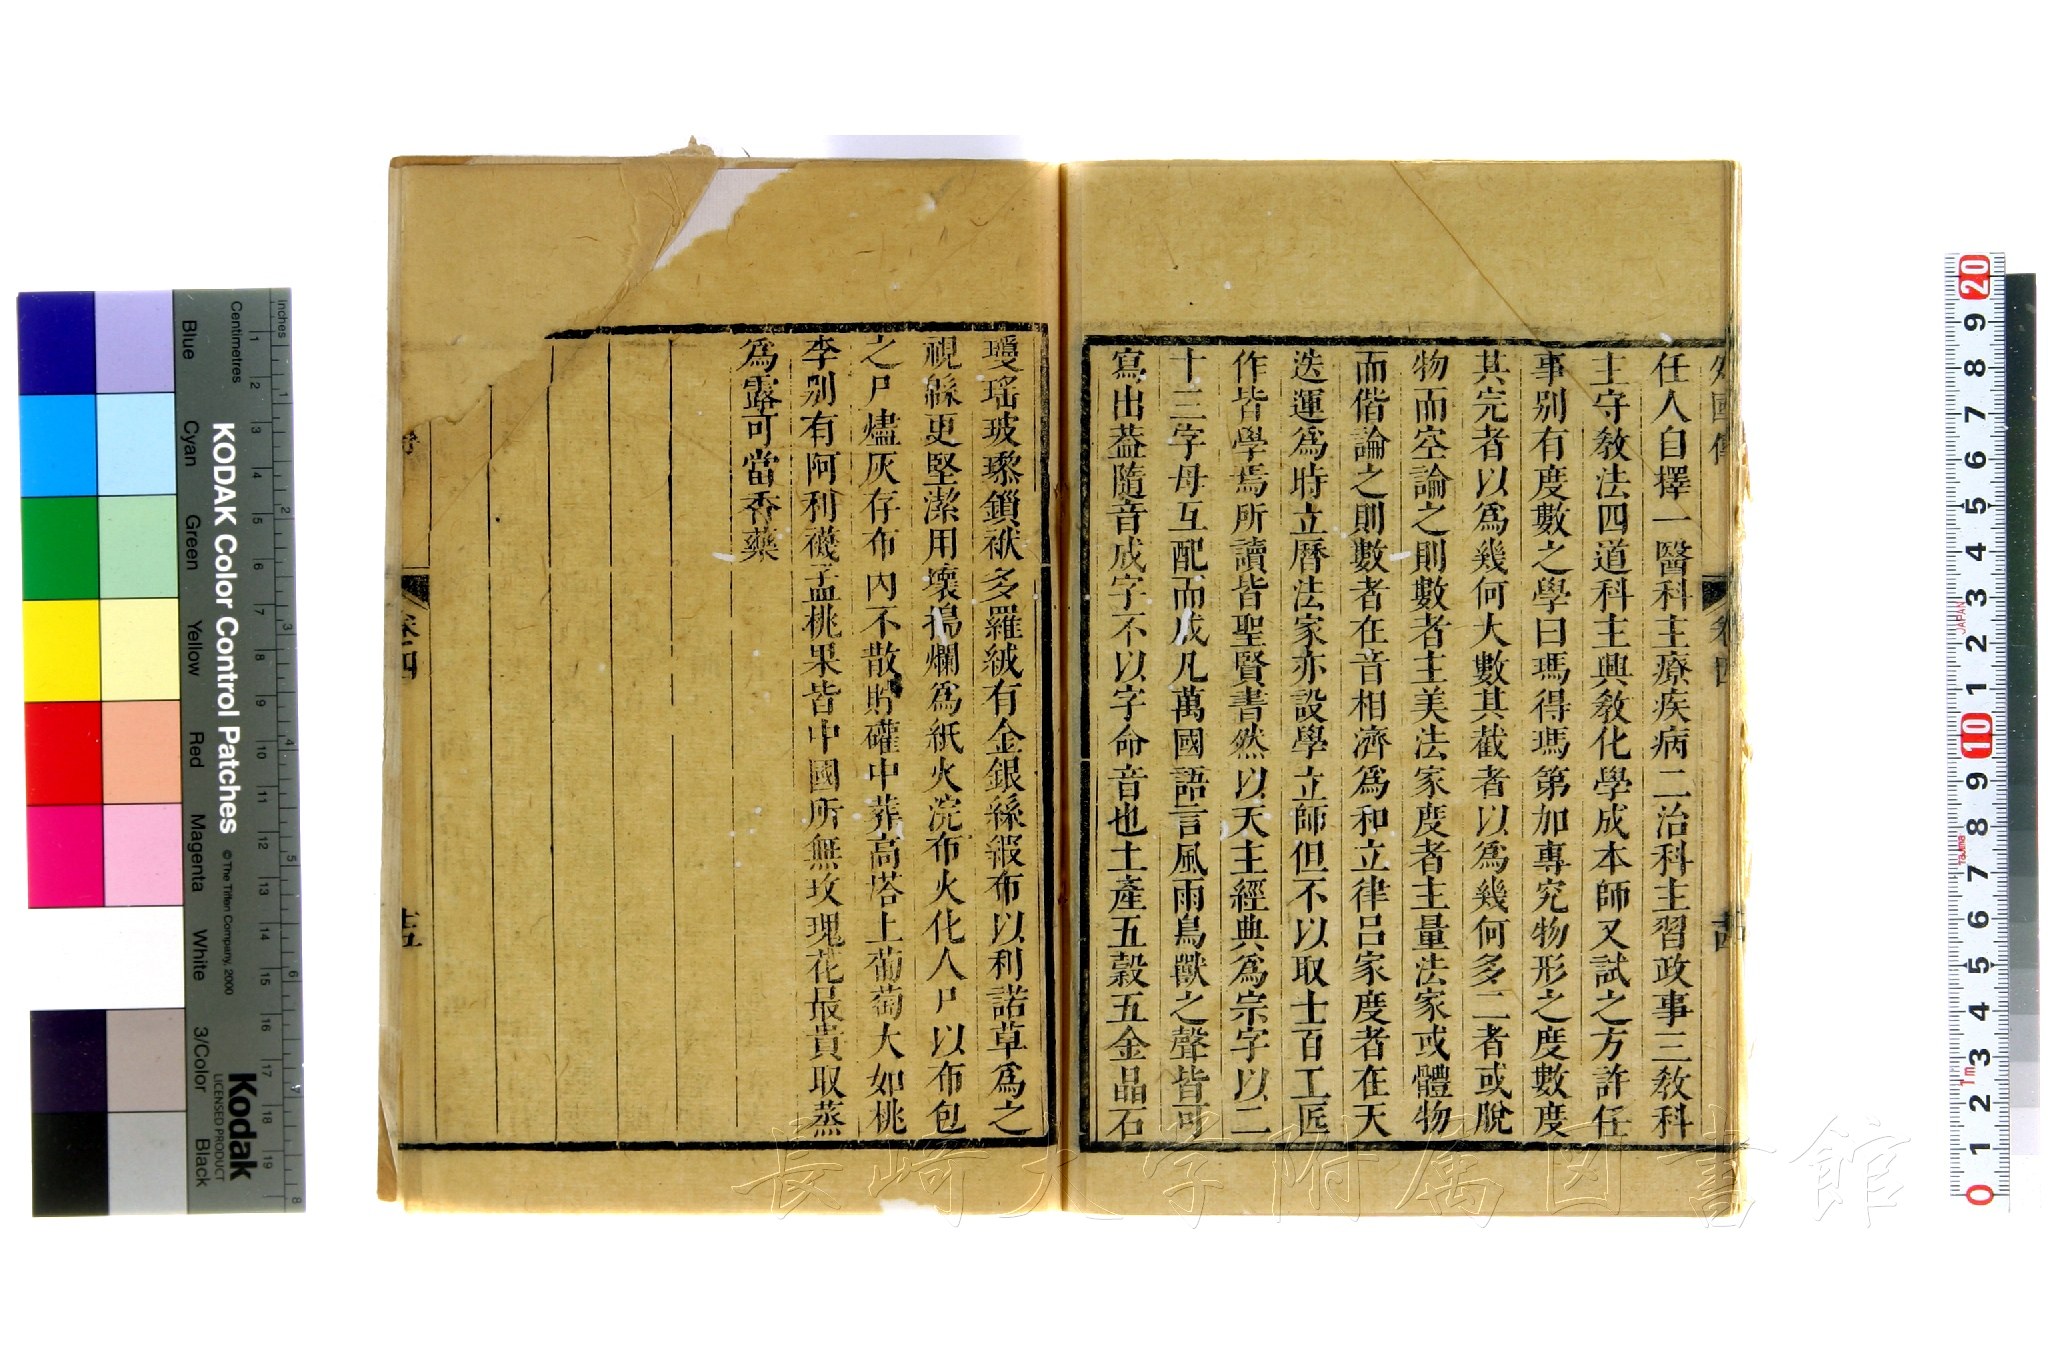 外國傳
卷四
西
任人自擇一醫科主療疾病二治科主習政事三教科
主守敎法四道科主興敎化學成本師又試之方許任
事别有度數之學曰瑪得瑪第加專究物形之度數度
其完者以爲幾何大數其截者以爲幾何多二者或脫
物而空論之則數者主美法家度者主量法家或體物
而偕論之則數者在音相濟爲和立律呂家度者在天
迭運爲時立曆法家亦設學立師但不以取士百工匠
作皆學焉所讀皆聖賢書然以天主經典爲宗字以二
十三字母互配而成凡萬國語言風雨鳥獸之聲皆可
寫出葢隨音成字不以字命音也土產五穀五金晶石
瓊瑤玻瓈鎖袱多羅絨有金銀絲緞布以利諾草爲之
視綿更堅潔用壞搗爛爲紙火浣布火化人尸以布包
之尸燼灰存布內不散貯礶中葬高塔上葡萄大如桃
李别有阿利襪孟桃果皆中國所無玫瑰花最貴取蒸
爲露可當香藥
卷四
十五
長崎大学附属図書館
KODAK Color Control Patches
© The Tiffen Company, 2000
Kodak
LICENSED PRODUCT
Inches
Centimetres
Blue
Cyan
Green
Yellow
Red
Magenta
White
3/Color
Black
1 2 3 4 5 6 7 8 9 10 11 12 13 14 15 16 17 18 19
1 2 3 4 5 6 7 8
20 9 8 7 6 5 4 3 2 1 10 9 8 7 6 5 4 3 2 1 0
JAPAN
Tajima
1m